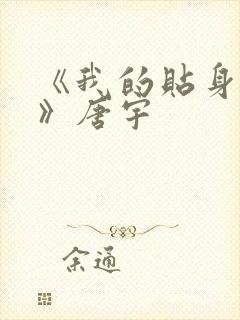 《我的贴身
》唐宇
余通